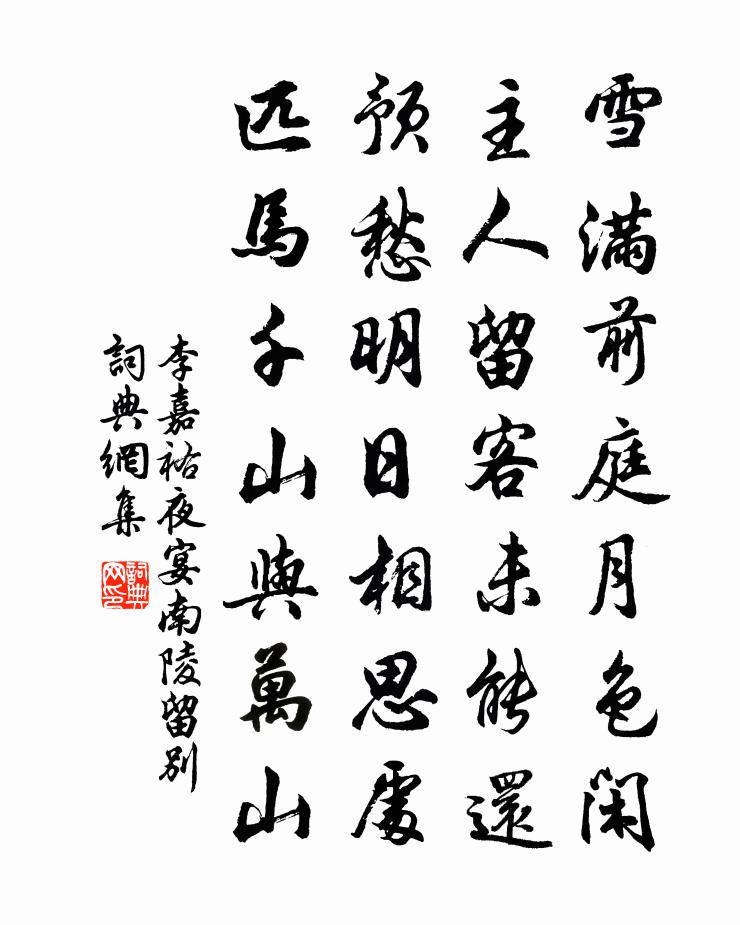 雪滿前庭月色閑
主人留客未能還
預愁明日相思處
匹馬千山與萬山
李嘉祐夜宴南陵留別
詞典網集
詞典網印